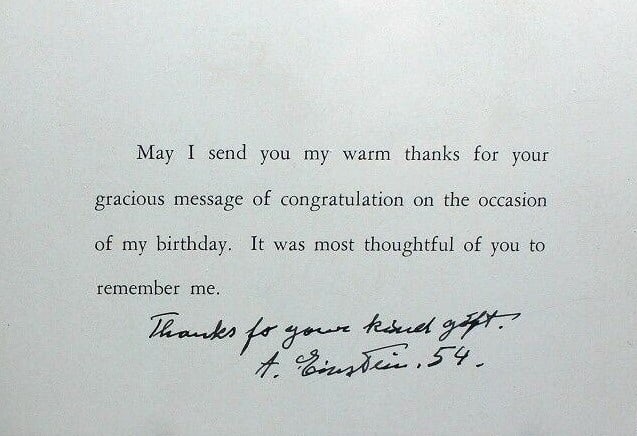 May I send you my warm thanks for your
gracious message of congratulation on the occasion
of my birthday. It was most thoughtful of you to
remember me.
Thanks fo your kind gift.
A. Einstein. 54.